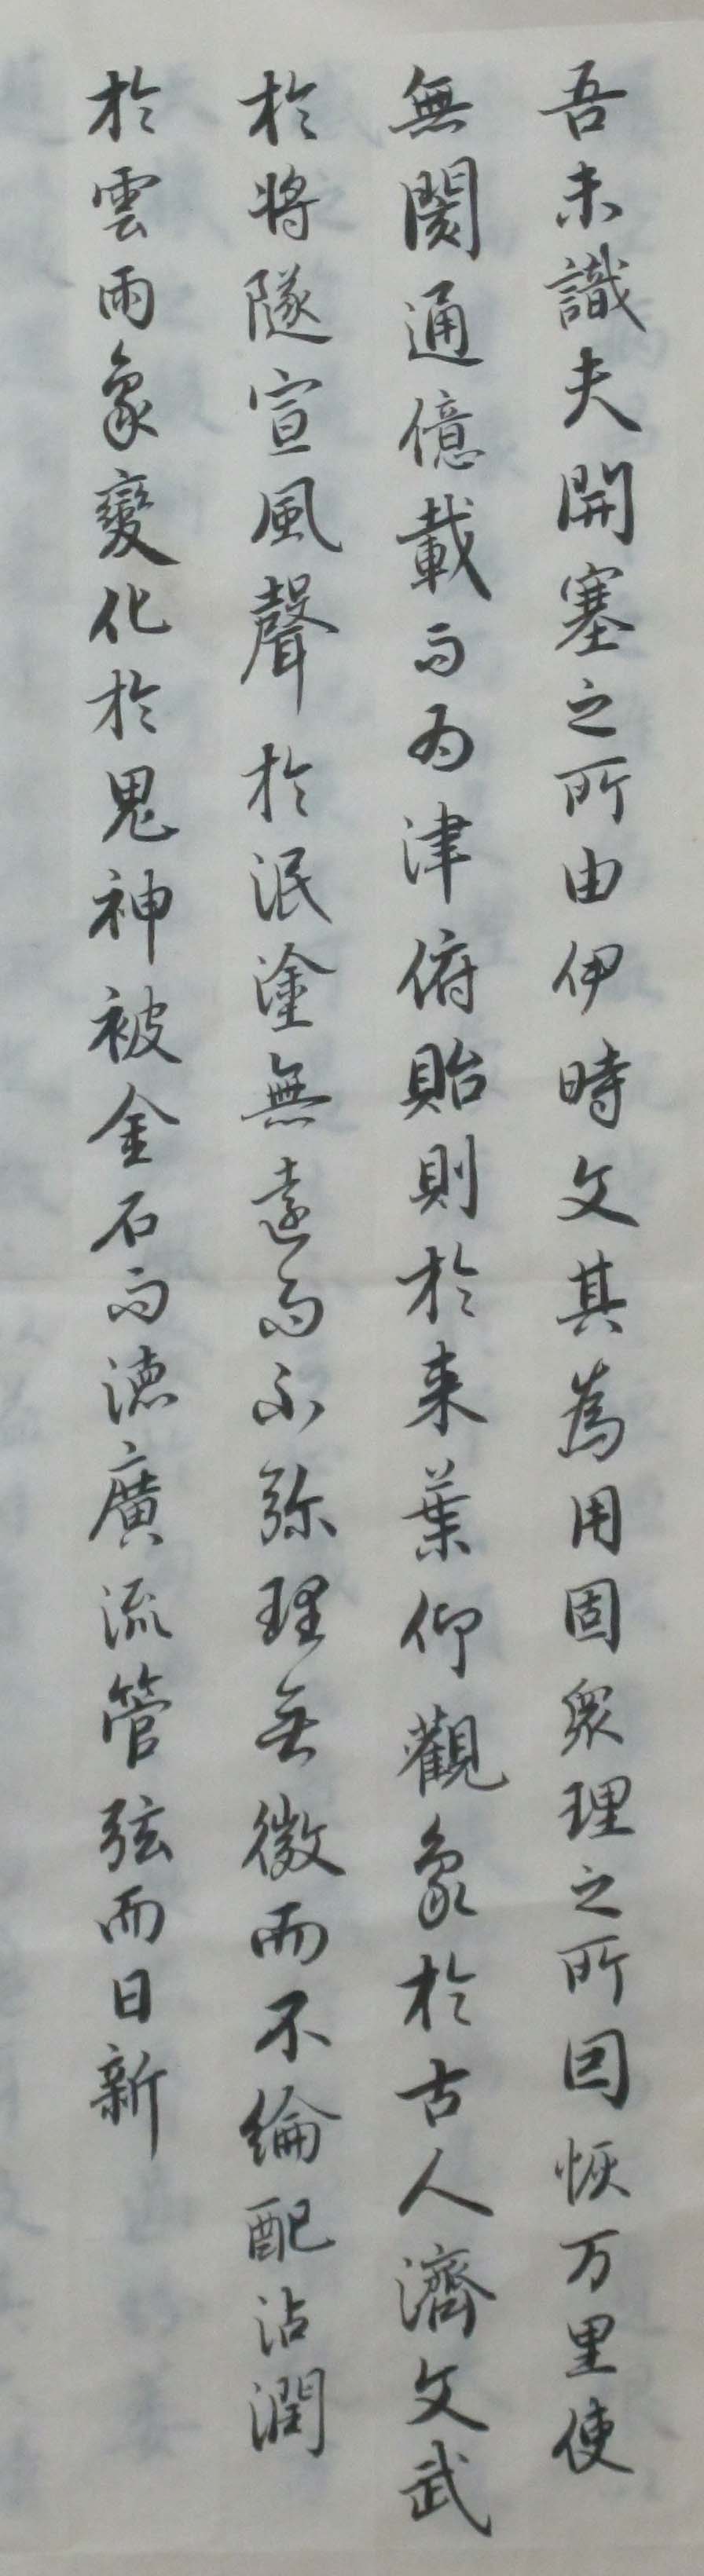 吾未識夫開塞之所由伊時文其為用固眾理之所因恢万里使
無閡通億載而為津俯貽則於来葉仰觀象於古人濟文武
於將隧宣風聲於泯塗無遠而不弥理無微而不綸配沾潤
於雲雨象變化於鬼神被金石而德廣流管弦而日新